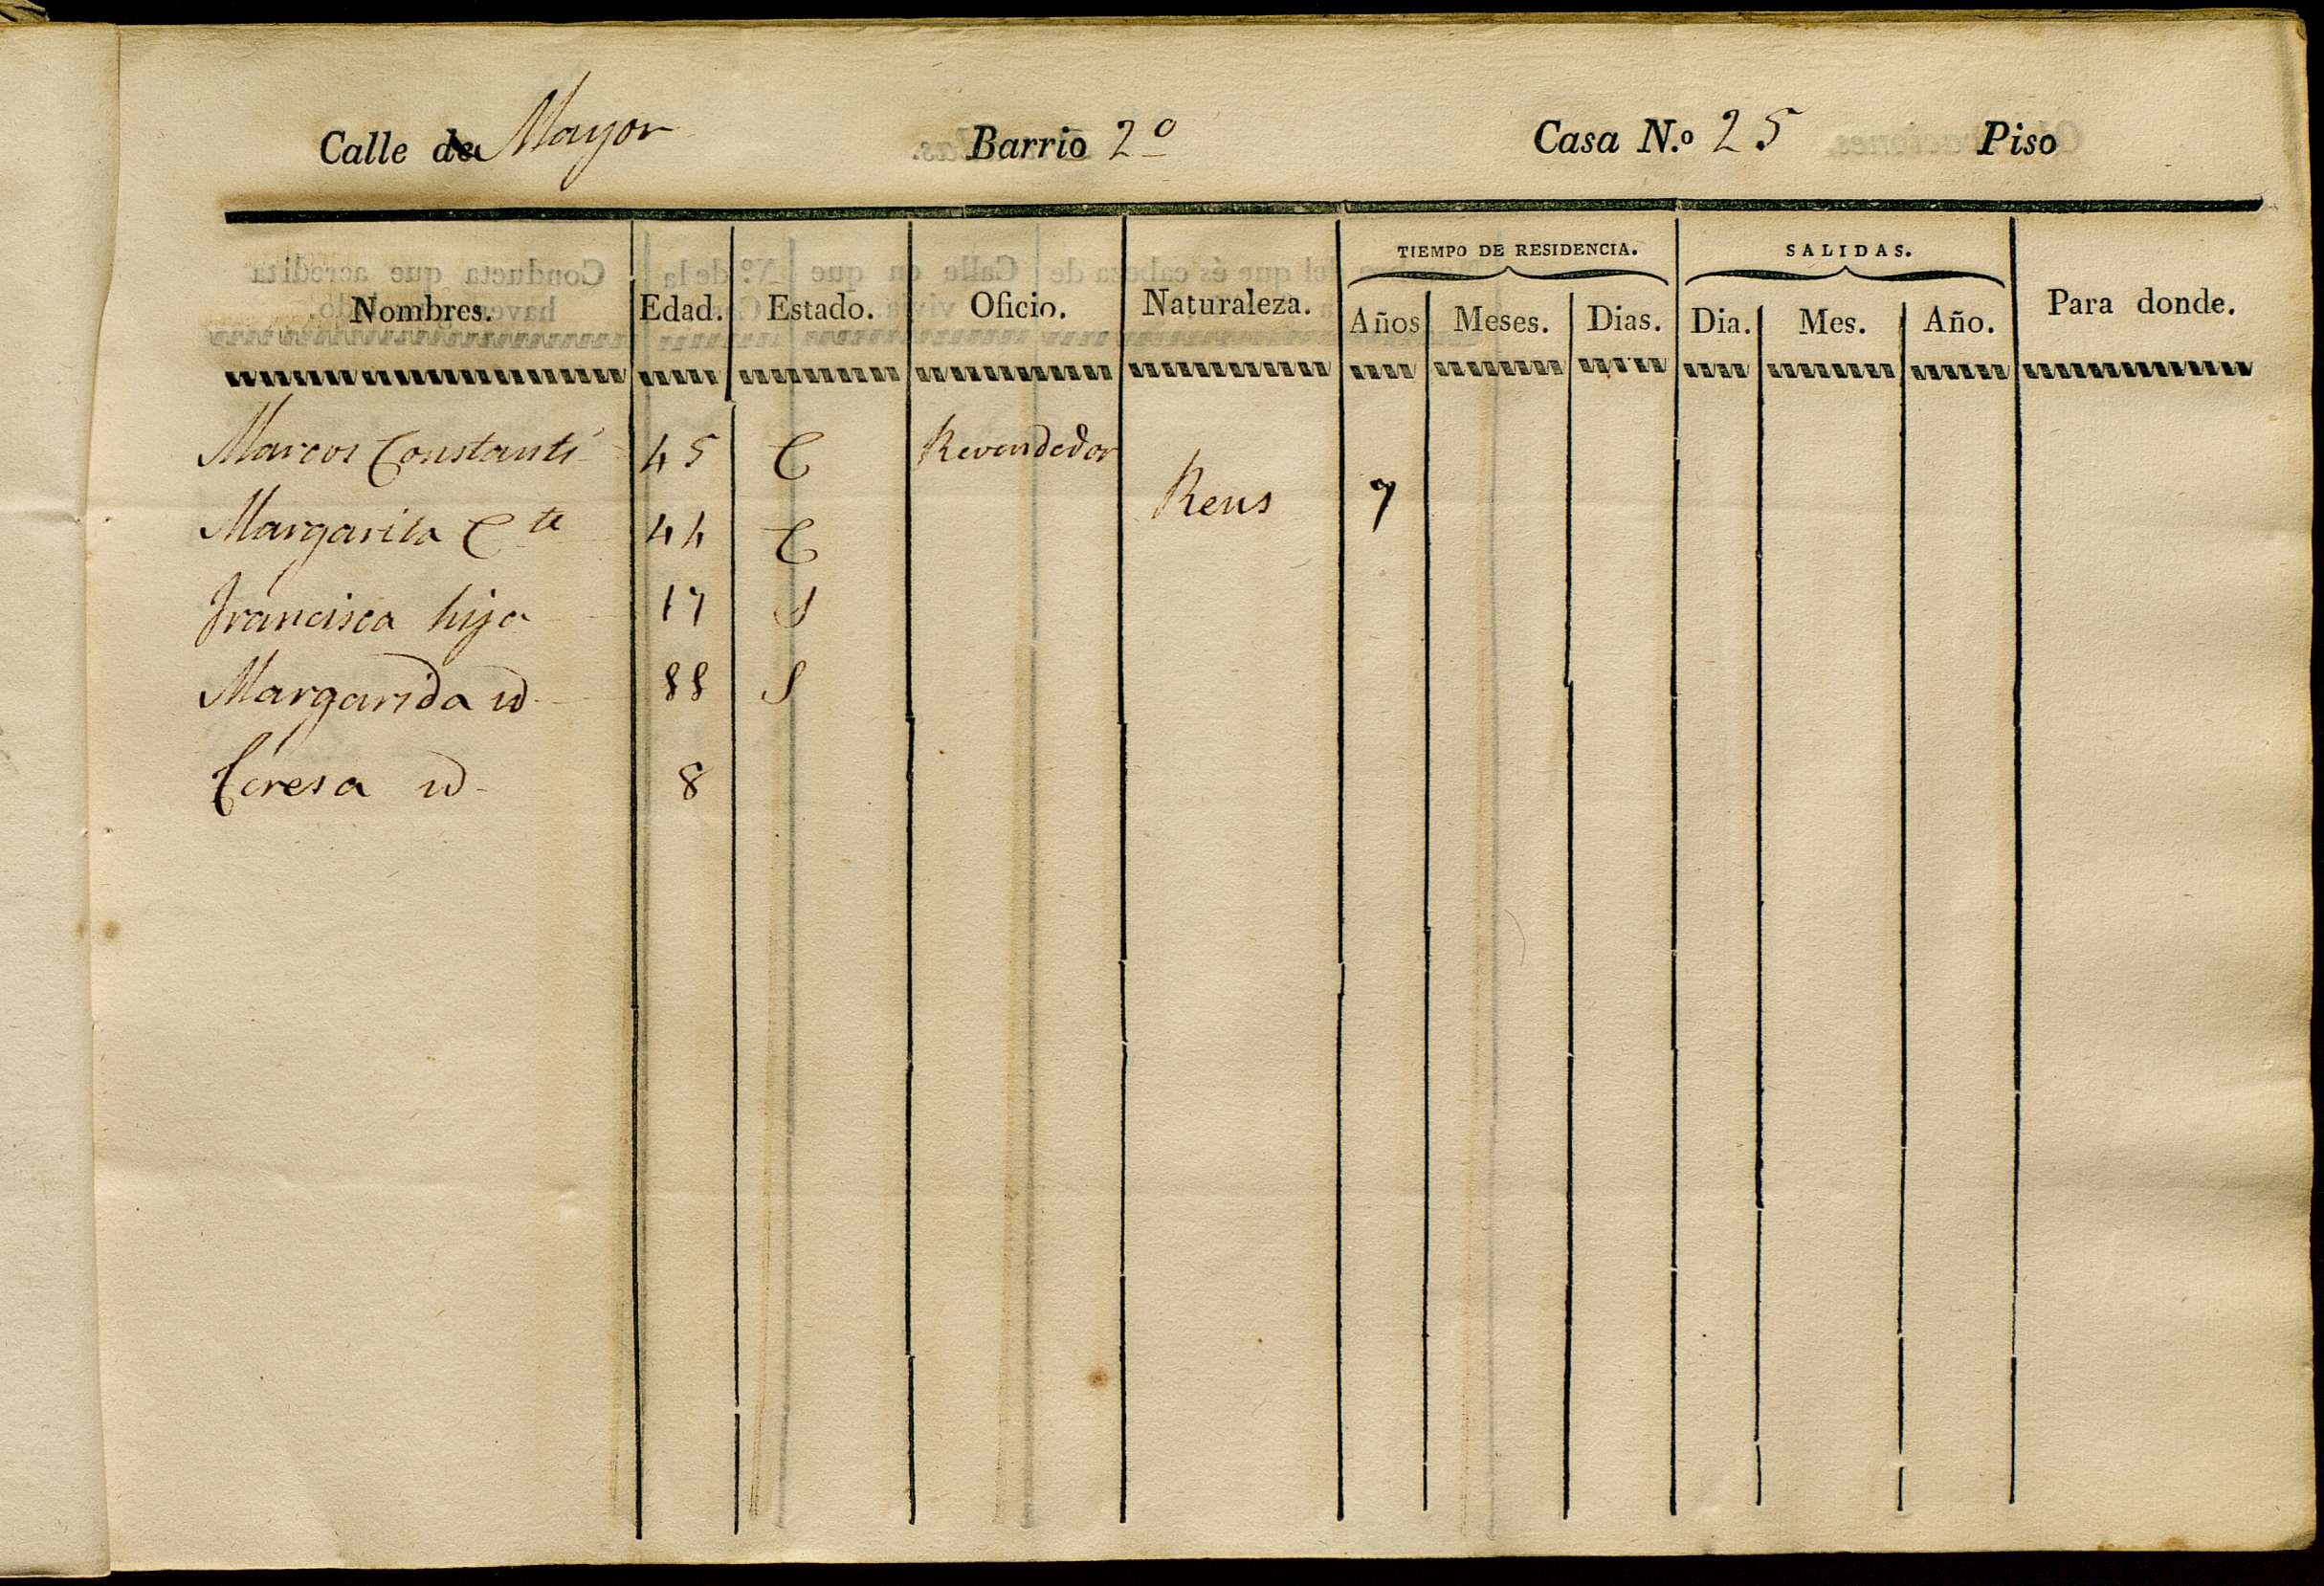 Calle de Mayor Barrio 2º Casa N.º 25 Piso
TIEMPO DE RESIDENCIA. SALIDAS.
Nombres. Edad. Estado. Oficio. Naturaleza. Años Meses. Dias. Dia. Mes. Año. Para donde.
Marcos Constantí 45 C Revendedor
Reus 7
Margarita C.te 44 C
Francisca hija 17 S
Margarida id. 88 S
Teresa id. 8